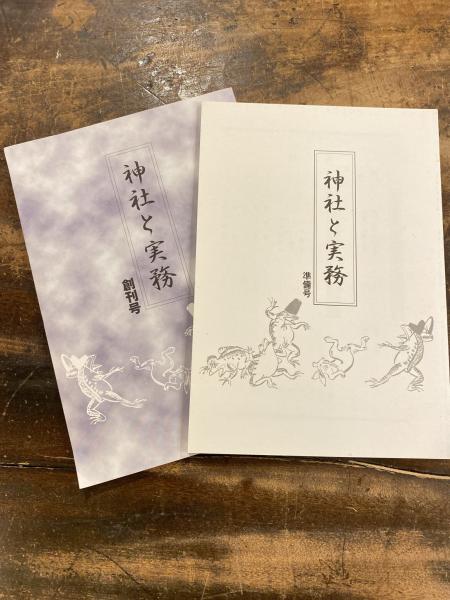 神社と実務
創刊号
神社と実務
準備号